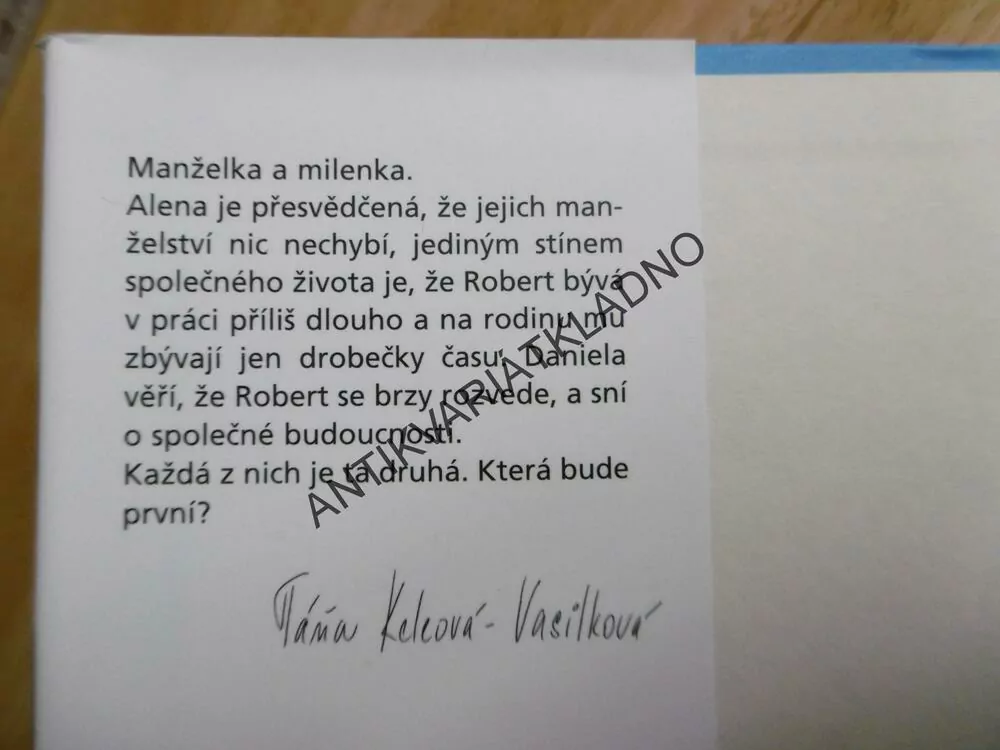 Manželka a milenka.
Alena je přesvědčená, že jejich man-
želství nic nechybí, jediným stínem
společného života je, že Robert bývá
v práci příliš dlouho a na rodinu mu
zbývají jen drobečky času. Daniela
věří, že Robert se brzy rozvede, a sní
o společné budoucnosti.
Každá z nich je ta druhá. Která bude
první?
Táňa Keleová-Vasilková
ANTIKVARIATKLADNO